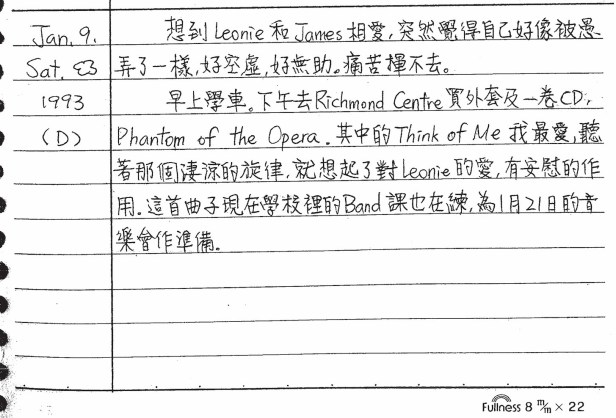 Jan. 9. 想到 Leonie 和 James 相愛,突然覺得自己好像被愚
Sat. 弄了一樣,好空虛,好無助。痛苦揮不去。
1993 早上學車。下午去 Richmond Centre 買外套及一卷CD:
(D) Phantom of the Opera. 其中的 Think of Me 我最愛,聽
著那個淒涼的旋律,就想起了對 Leonie 的愛,有安慰的作
用。這首曲子現在學校裡的 Band 課也在練,為1月21日的音
樂會作準備。
Fullness 8 m/m × 22